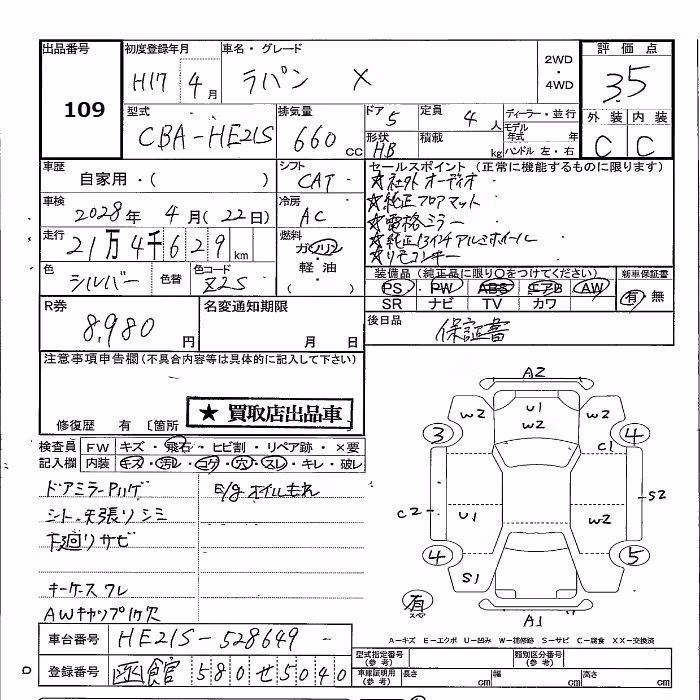 出品番号 初度登録年月 車名・グレード 2WD・4WD 評価点
109 H17 4月 ラパン X 3.5
型式 排気量 ドア 5 定員 4人 ディーラー・並行 外装 内装
CBA-HE21S 660cc 形状 HB 積載 kg モデル年式 年 ハンドル 左・右 C C
車歴 自家用・( ) シフト CAT セールスポイント (正常に機能するものに限ります)
車検 2028年 4月(22日) 冷房 AC
☆社外オーディオ
☆純正フロアマット
☆電格ミラー
☆純正13インチアルミホイール
☆リモコンキー
走行 21万4千629km 燃料 ガソリン 軽・油 ( )
色 シルバー 色替 色コード Z2S
装備品 (純正品に限り○をつけてください) 新車保証書
PS PW ABS エアB AW 有・無
SR ナビ TV カワ
R券 8,980円 名変通知期限 月 日 後日品 保証書
注意事項申告欄(不具合内容等は具体的に記入して下さい)
★買取店出品車
修復歴 有 〔箇所
検査員記入欄 FW キズ・飛石・ヒビ割・リペア跡・×要
内装 キズ・汚レ・コゲ・穴・スレ・キレ・破レ
ドアミラーPハゲ E/gオイルもれ
シート・天張リシミ
下廻リサビ
キーケースワレ
AWキャップ1ケ欠
A2
W2 U1 W2 W2
3 4
C1
C2 U1 W2 S2
4 5
S1
有 スペア
A1
A-キズ E-エクボ U-凹み W-補修跡 S-サビ C-腐食 XX-交換済
車台番号 HE21S-528649-
登録番号 函館 580 せ 5040
型式指定番号(参考) 類別区分番号(参考)
車庫証明用(参考) 長さ cm 幅 cm 高さ cm